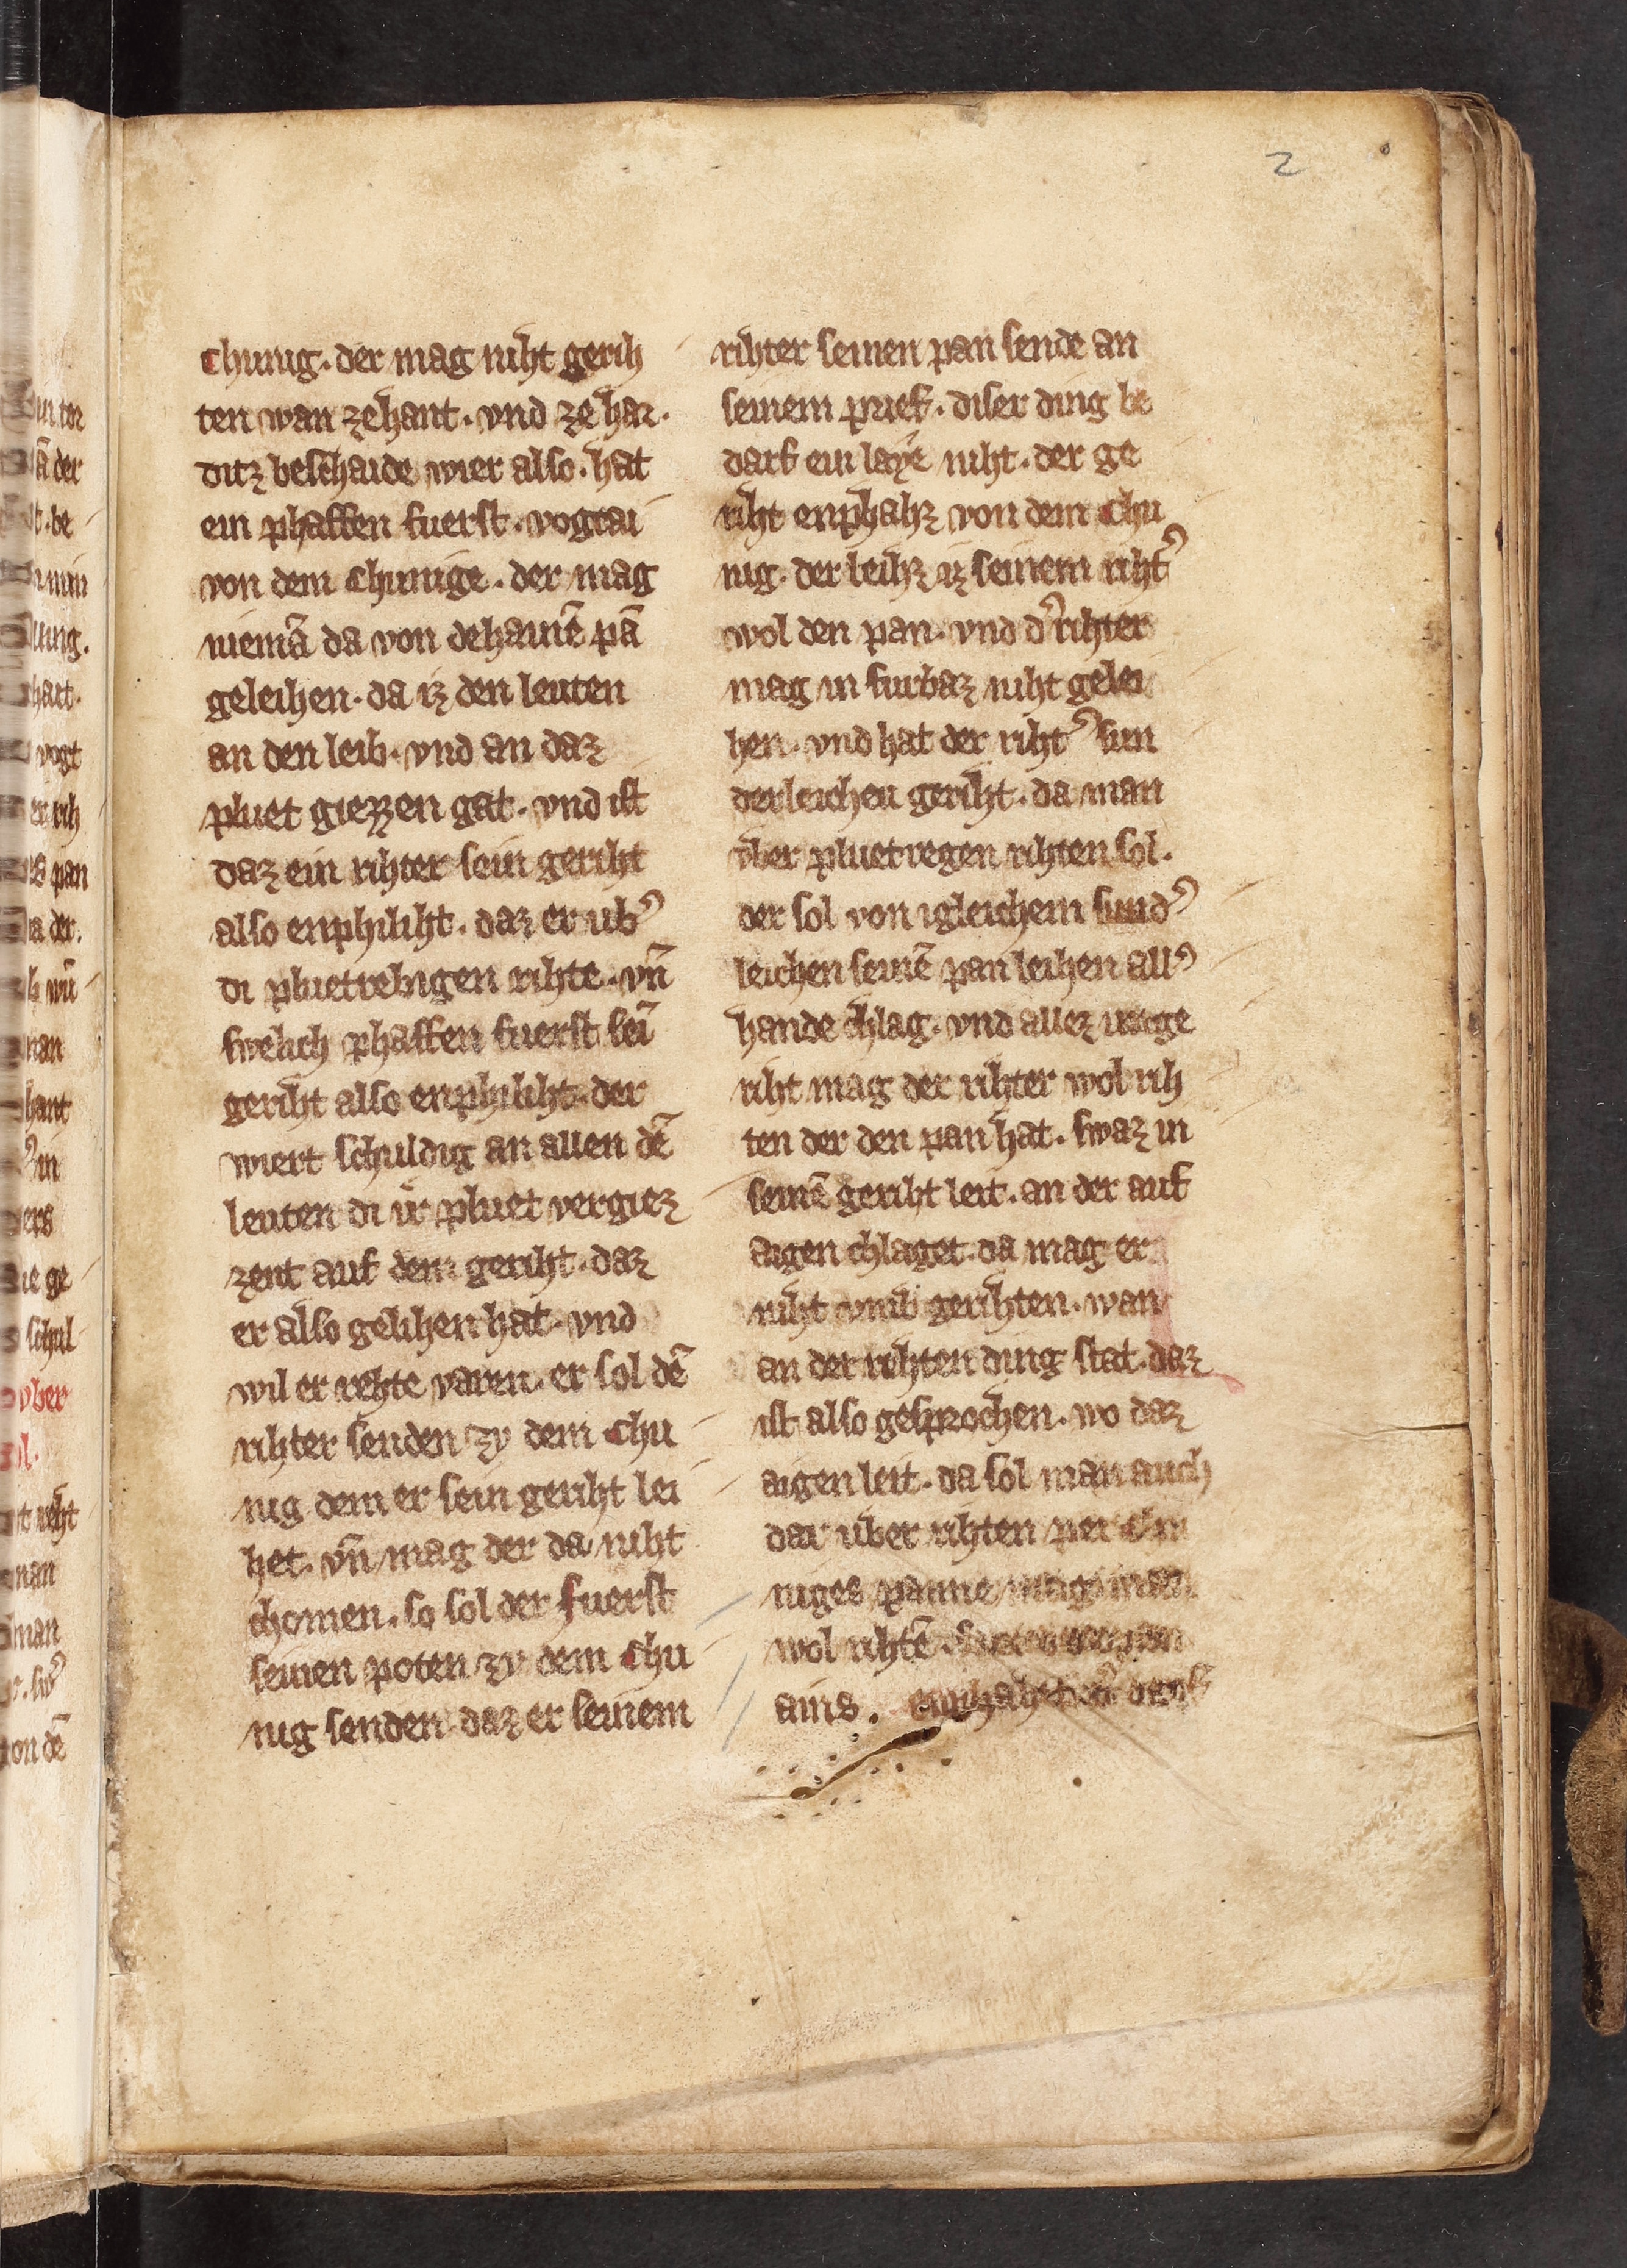 2
Chunig. der mag niht gerih
ten wan zehant. vnd ze har.
ditz beschaide wier also. hat
ein phaffen fuerst. vogtai
von dem Chunige. der mag
niemā da von dehainē pā
geleihen. da iz den leuten
an den leib. vnd an daz
pluet giezzen gat. vnd ist
daz ein rihter sein geriht
also enphiliht. daz er ub᾽
di pluetrehigen rihte. vn̄
swelich phaffen fuerst sei̅
geriht also enphiliht. der
wiert schuldig an allen dē
leuten di ir pluet vergiez
zent auf dem geriht. daz
er also gelihen hat. vnd
wil er rehte varen. er sol dē
rihter senden zv dem Chu
nig dem er sein geriht lei
het. vn̄ mag der da niht
chomen. so sol der fuerst
seinen poten zv dem Chu
nig senden. daz er seinem
rihter seinen pan sende an
seinem prief. diser ding be
darf ein laye niht. der ge
riht enphahz von dem Chu
nig. der leihz iz seinem riht᾽
wol den pan. vnd d᾽ rihter
mag in furbaz niht gelei
hen. vnd hat der riht᾽ sun
derleichen geriht. da man
vber pluetregen rihten sol.
der sol von igleichem sund᾽
leichen seinē pan leihen all᾽
hande chlag. vnd allez unge
riht mag der rihter wol rih
ten der den pan hat. swaz in
seinē geriht leit. an der auf
aigen chlaget. da mag er
niht vmb gerihten. wan
an der rehten ding stat. daz
ist also gesprochen. wo daz
aigen leit. da sol man auch
dar uber rihten per Chu
niges panne mag man
wol rihtē.
ains.
in tor
ā der
t. be
min
ung.
hart.
vogt
er rih
es pan
a der.
vn̄
man
hant
in
ders
ie ge
schul
vber
ol.
reht
man
man
on dē